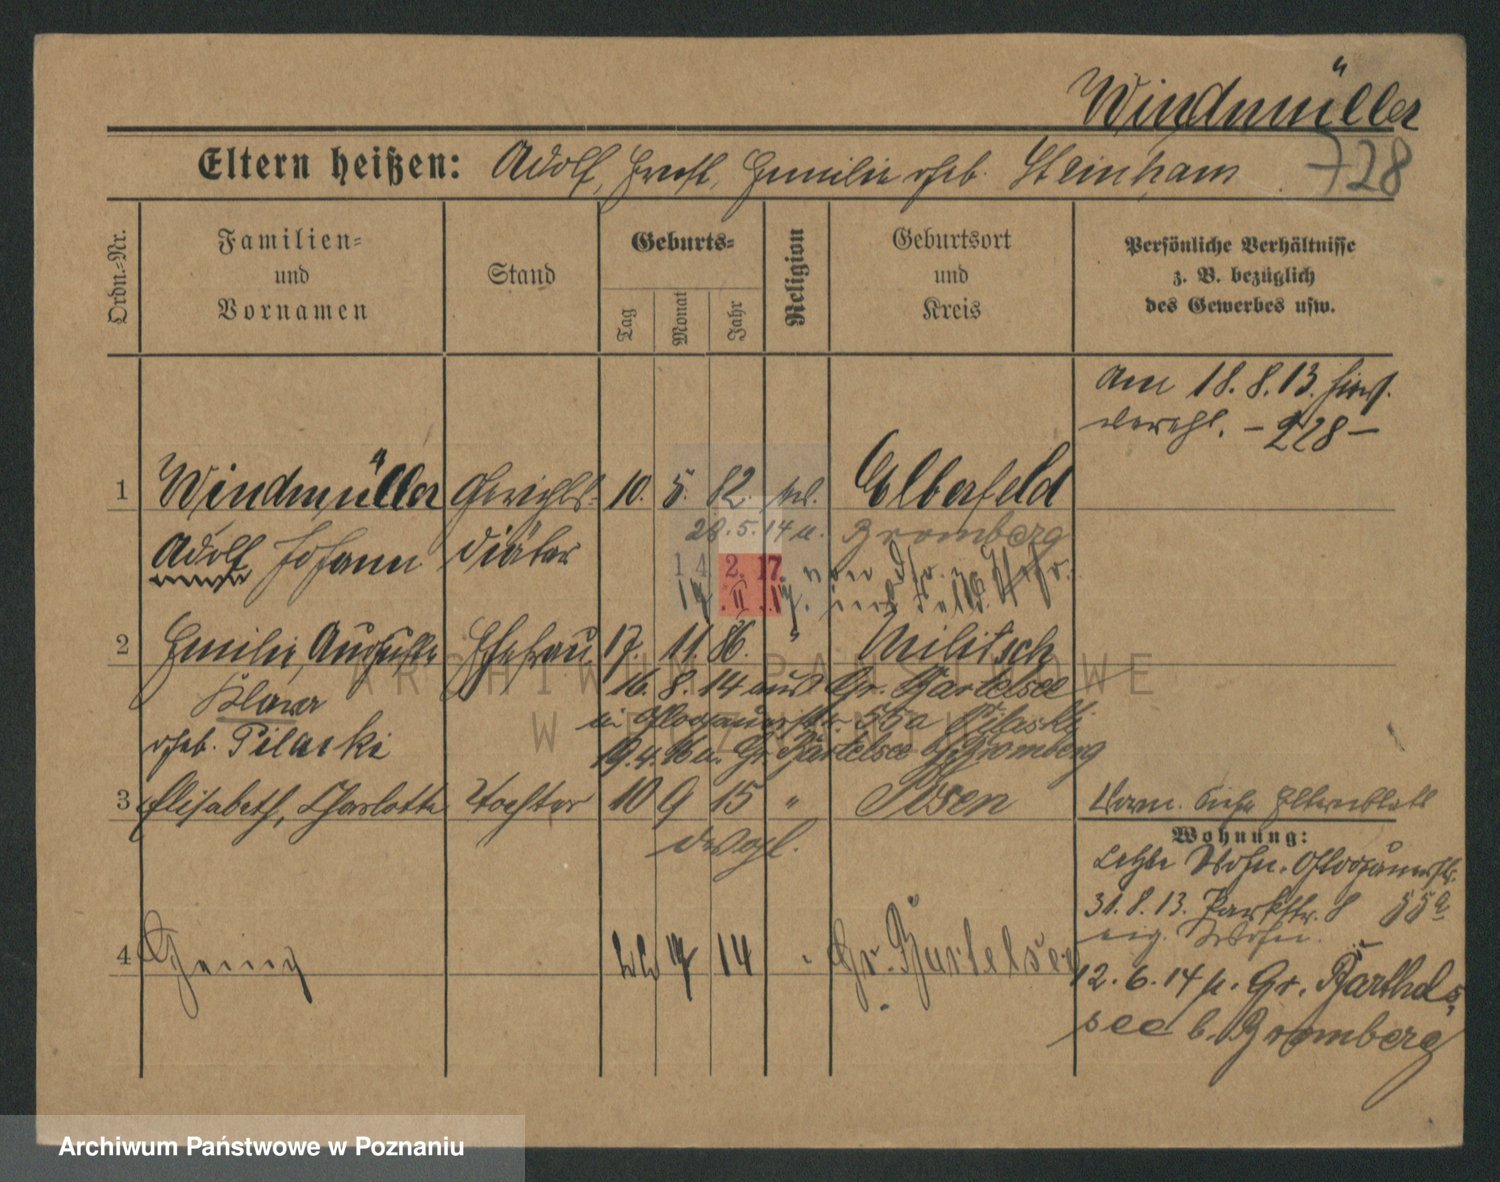 Windmüller
Eltern heißen: Adolf, Ernst, Emilie geb. Steinham
728
Ordn.=Nr.
Familien= und Vornamen
Stand
Geburts=
Tag
Monat
Jahr
Religion
Geburtsort und Kreis
Persönliche Verhältnisse
z. B. bezüglich
des Gewerbes usw.
Am 18. 8. 13. hier
verehl. – 228 –
1 Windmüller Gerichts- 10. 5. 82. Elberfeld
Adolf Johann diätar 28. 5. 14 u. Bromberg
14. 2. 17.
2 Emilie, Auguste Ehefrau 17. 11. 86. " Militsch
Klara 16. 8. 14 aus Gr. Bartelsee
55a Pilaski
geb. Pilarki 19. 4. 16 u. Gr. Bartelsee b. Bromberg
3 Elisabeth, Charlotte Tochter 10 9 15 " Posen
Vorm. siehe Elternblatt
Wohnung:
Letzte Wohn. Glogauerstr.
55a
31. 8. 13. Parkstr. 8
eig. Wohn.
4 Georg 14 Gr. Bartelsee
12. 6. 14 n. Gr. Barthel
see b. Bromberg
ARCHIWUM PAŃSTWOWE
W POZNANIU
Archiwum Państwowe w Poznaniu